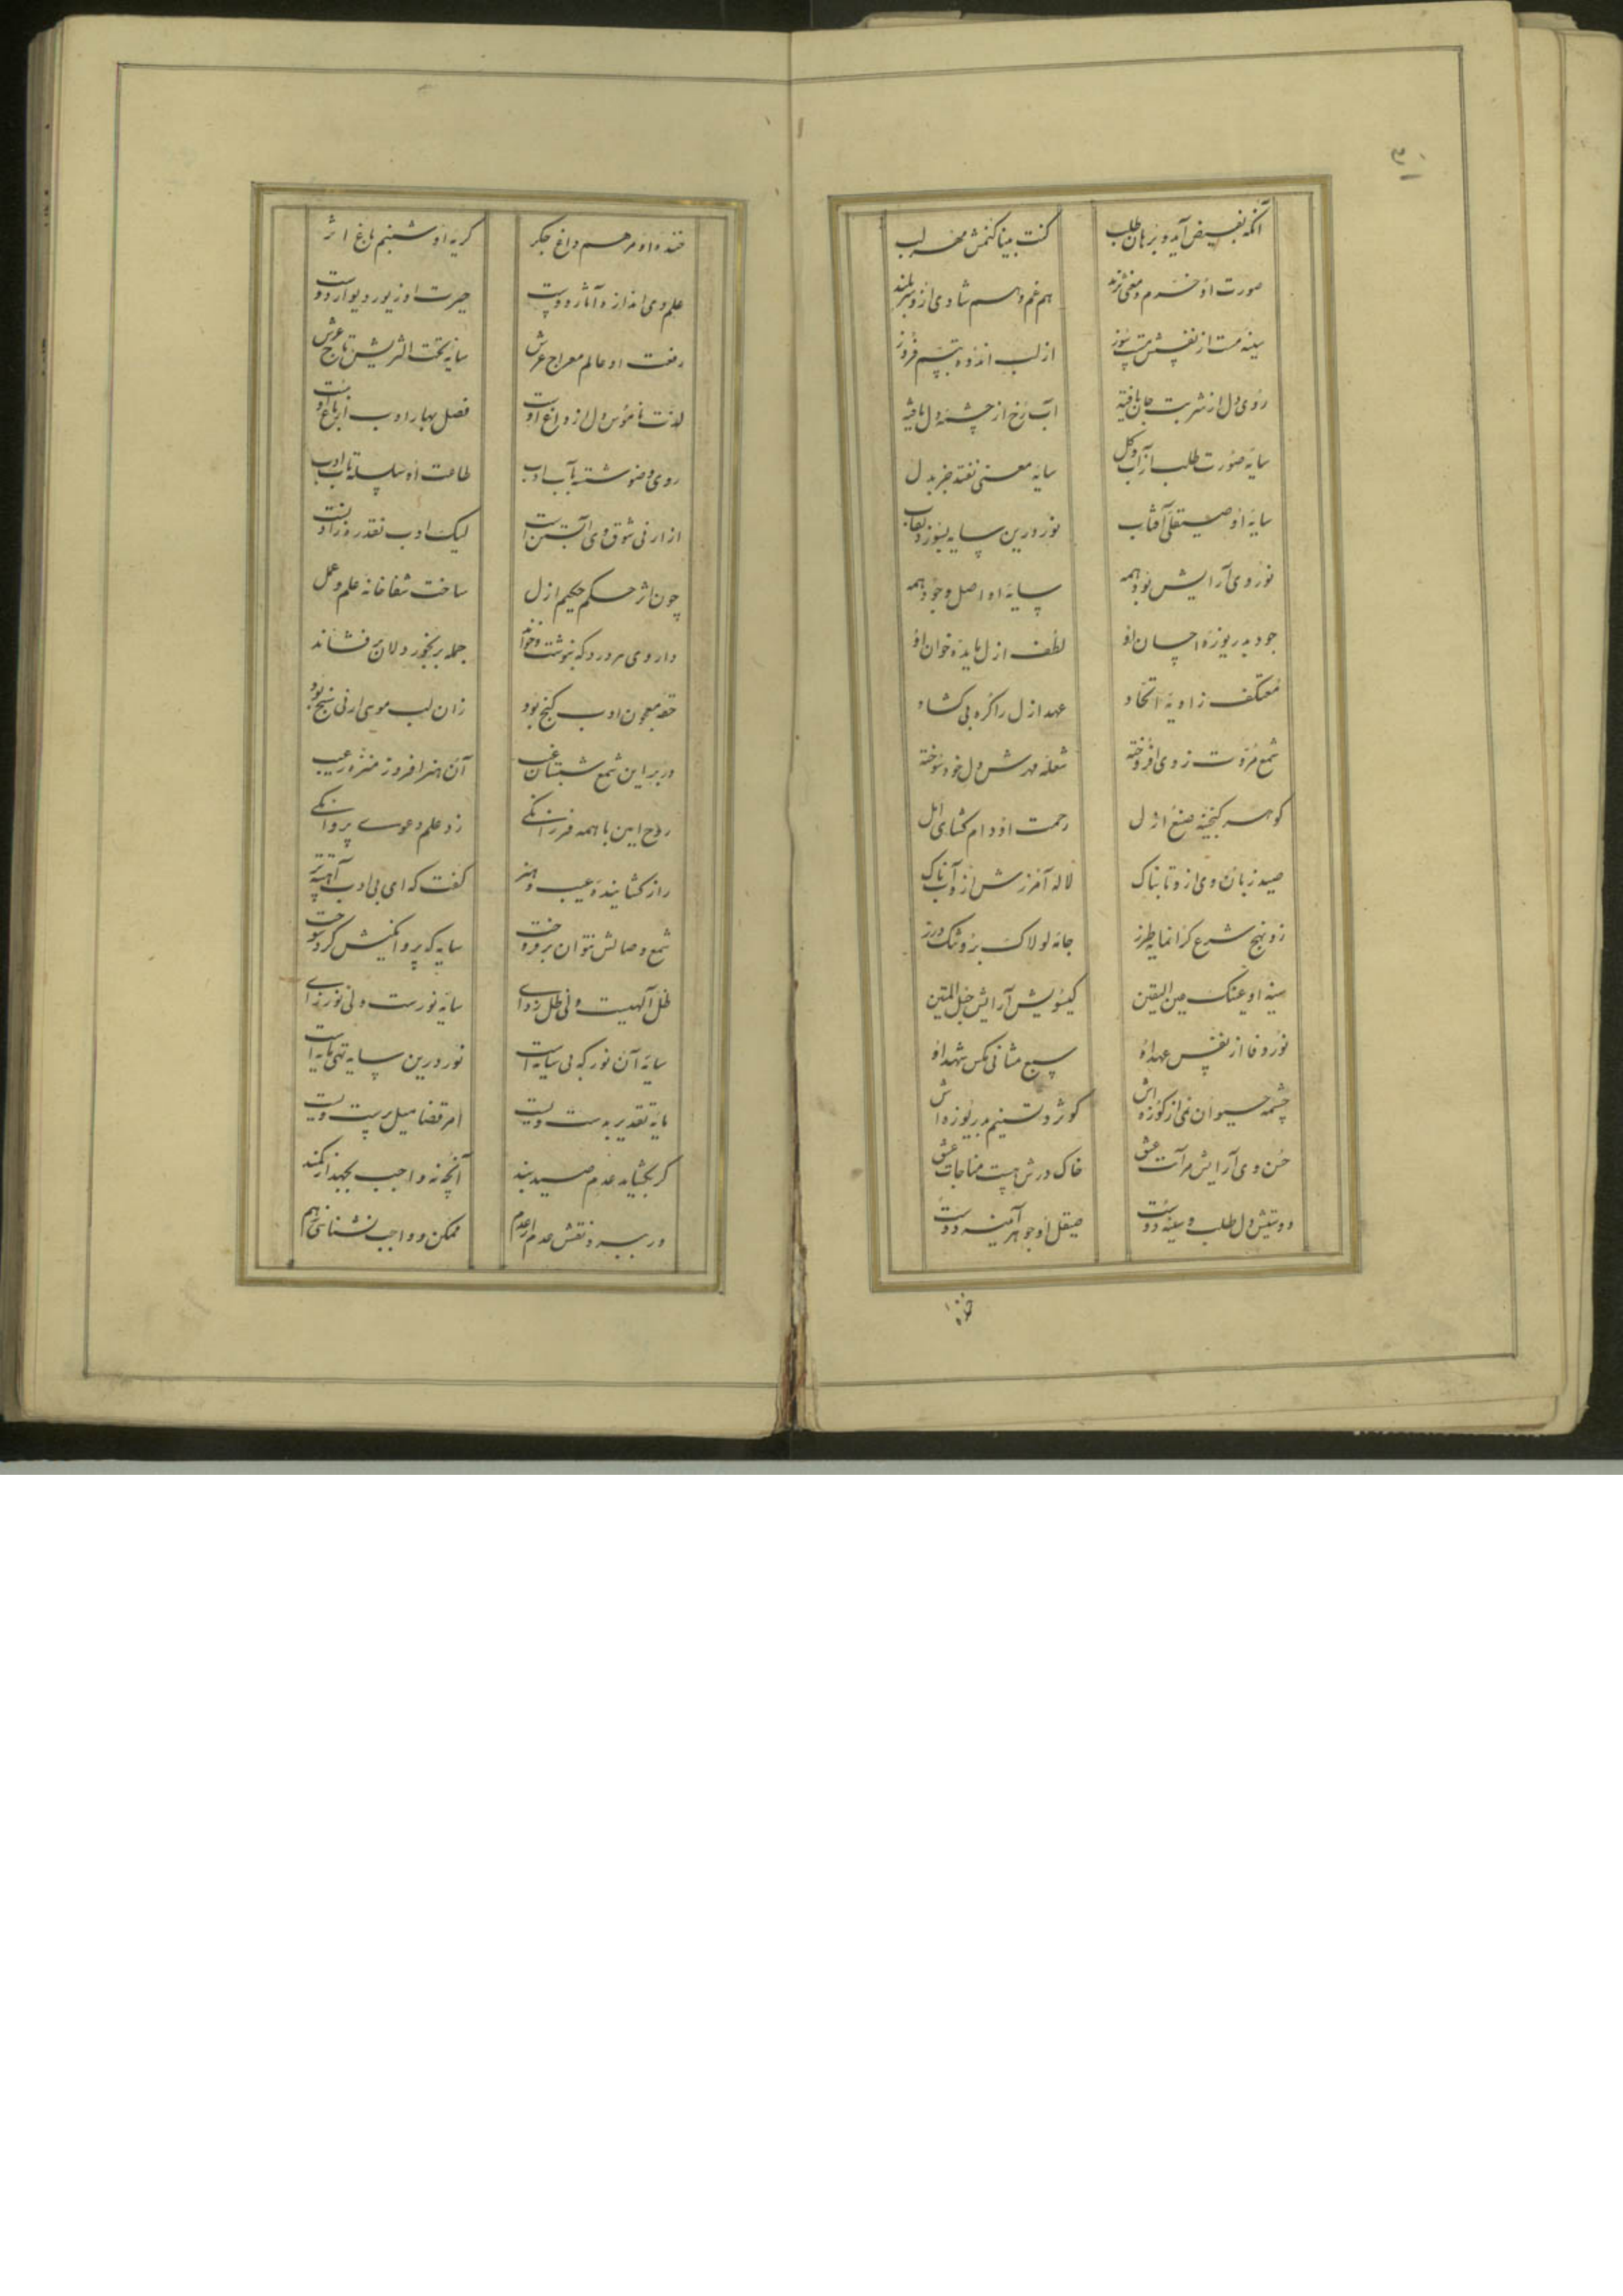 ۳۰
آنکه بفیض آید و برهان طلب کنت نبیا کنمش مهر لب
صورت او خرم و معنی نژند هم غم و هم شادی ازو سربلند
سینه مست از نفسش سوز از لب اندوه تبسم فروز
روی دل از شربت جان یافته آب رخ از چشمه دل یافته
سایه صورت طلب از آب و گل سایه معنی نفتد جز بدل
سایه او صیقلی آفتاب نور درین سایه بسوزد نقاب
نور وی آرایش بود همه سایه او اصل وجود همه
جود بدریوزه احسان او لطف ازل مایده خوان او
معتکف زاویه اتحاد عهد ازل را گره بی گشاد
شمع مروت ز وی افروخته شعله مهرش دل خود سوخته
گوهر گنجینه صنع ازل رحمت او دام گشای امل
صید زبان وی ازو تابناک لاله آمرزش ازو آب ناک
زو نهج شرع گرانمایه طرز جامه لولاک بروشنگ درز
سینه او عینک عین الیقین گیسویش آرایش حبل المتین
نور وفا از نفس عهد او سبع مثانی مگس شهد او
چشمه حیوان نمی از کوزه اش کوثر و تسنیم بدریوزه اش
حسن وی آرایش مرآت عشق خاک درش هست مناجات عشق
دوستیش دل طلب و سینه دوست صیقل او جوهر آیینه دوست
خنده
خنده او مرهم داغ جگر گریه او شبنم باغ اثر
علم وی اندازه آثار دوست حیرت او زیور دیوار دوست
رفعت او عالم معراج عرش سایه تحت الثریش تاج عرش
لذت ناموس دل از داغ اوست فصل بهار ادب از باغ اوست
روی وضو شسته بآب ادب طاعت او سلسله تاب ادب
از ارنی شوق وی آبستن است لیک ادب نقد در
چون اثر حکم حکیم ازل ساخت شفاخانه علم و عمل
داروی هر درد که بنوشت و خواند جمله برنجور دلان بر فشاند
حقه معجون ادب گنج بود زان لب موسی ارنی سنج بود
در بر این شمع شبستان غیب آن هنر افروز منزه ز عیب
روح امین با همه فرزانگی زد علم دعوی پروانگی
راز گشاینده عیب و هنر گفت که ای بی ادب آهسته تر
شمع وصالش نتوان بر فروخت سایه که پروانگیش کرد سوخت
ظل آلهیست ولی ظل زدای سایه نورست ولی نور زای
سایه آن نور که بی سایه است نور درین سایه تهی مایه است
مایه تقدیر بدست ویست امر قضا میل پرست ویست
گر بگشاید عدم صید بند آنچه نه واجب بجهد از کمند
ور بسپرد نقش عدم از عدم ممکن و واجب نشناسی ز هم